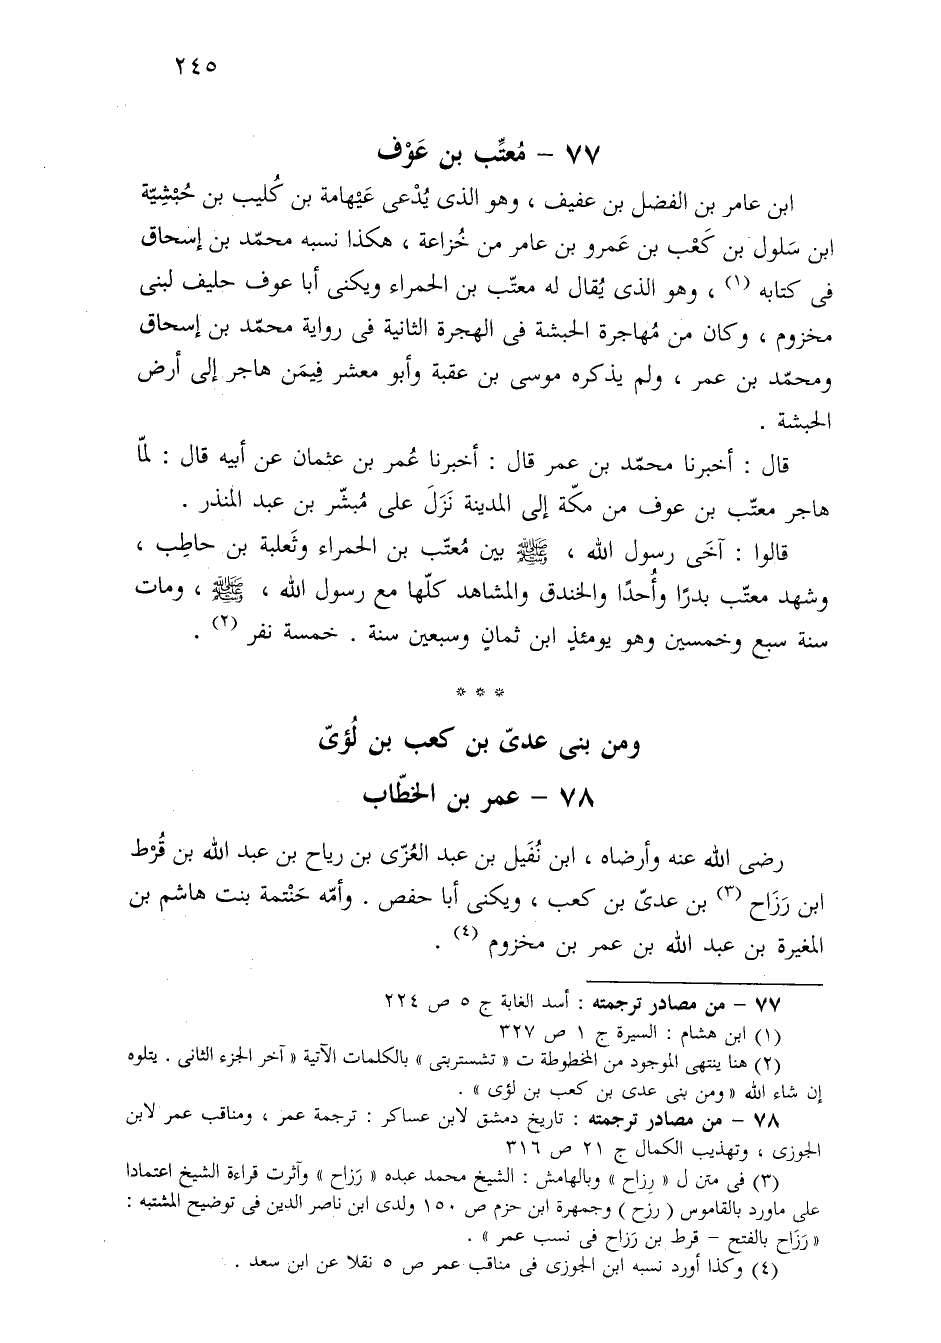 ٢٤٥
٧٧ – مُعتِّب بن عَوْف
ابن عامر بن الفضل بن عفيف ، وهو الذى يُدْعى عَيْهامة بن كُليب بن حُبْشِيّة
ابن سَلول بن كَعْب بن عَمرو بن عامر من خُزاعة ، هكذا نسبه محمّد بن إسحاق
فى كتابه (١) ، وهو الذى يُقال له معتّب بن الحمراء ويكنى أبا عوف حليف لبنى
مخزوم ، وكان من مُهاجرة الحبشة فى الهجرة الثانية فى رواية محمّد بن إسحاق
ومحمّد بن عمر ، ولم يذكره موسى بن عقبة وأبو معشر فِيمَن هاجر إلى أرض
الحبشة .
قال : أخبرنا محمّد بن عمر قال : أخبرنا عُمر بن عثمان عن أبيه قال : لمّا
هاجر معتّب بن عوف من مكّة إلى المدينة نَزَلَ على مُبشّر بن عبد المنذر .
قالوا : آخَى رسول الله ، ﷺ بين مُعتّب بن الحمراء وثَعلبة بن حاطِب ،
وشهد معتّب بدرًا وأُحدًا والخندق والمشاهد كلّها مع رسول الله ، ﷺ ، ومات
سنة سبع وخمسين وهو يومئذٍ ابن ثمانٍ وسبعين سنة . خمسة نفر (٢) .
* * *
ومن بنى عدىّ بن كعب بن لُؤىّ
٧٨ – عمر بن الخطّاب
رضى الله عنه وأرضاه ، ابن نُفَيل بن عبد العُزّى بن رياح بن عبد الله بن قُرْط
ابن رَزَاح (٣) بن عدىّ بن كعب ، ويكنى أبا حفص . وأمّه حَنْتمة بنت هاشم بن
المغيرة بن عبد الله بن عمر بن مخزوم (٤) .
٧٧ – من مصادر ترجمته : أسد الغابة ج ٥ ص ٢٢٤
(١) ابن هشام : السيرة ج ١ ص ٣٢٧
(٢) هنا ينتهى الموجود من المخطوطة ت « تشستربتى » بالكلمات الآتية « آخر الجزء الثانى . يتلوه
إن شاء الله « ومن بنى عدى بن كعب بن لؤى » .
٧٨ – من مصادر ترجمته : تاريخ دمشق لابن عساكر : ترجمة عمر ، ومناقب عمر لابن
الجوزى ، وتهذيب الكمال ج ٢١ ص ٣١٦
(٣) فى متن ل « رِزاح » وبالهامش : الشيخ محمد عبده « رَزاح » وآثرت قراءة الشيخ اعتمادا
على ماورد بالقاموس ( رزح ) وجمهرة ابن حزم ص ١٥٠ ولدى ابن ناصر الدين فى توضيح المشتبه :
« رَزَاح بالفتح – قرط بن رَزاح فى نسب عمر » .
(٤) وكذا أورد نسبه ابن الجوزى فى مناقب عمر ص ٥ نقلا عن ابن سعد .